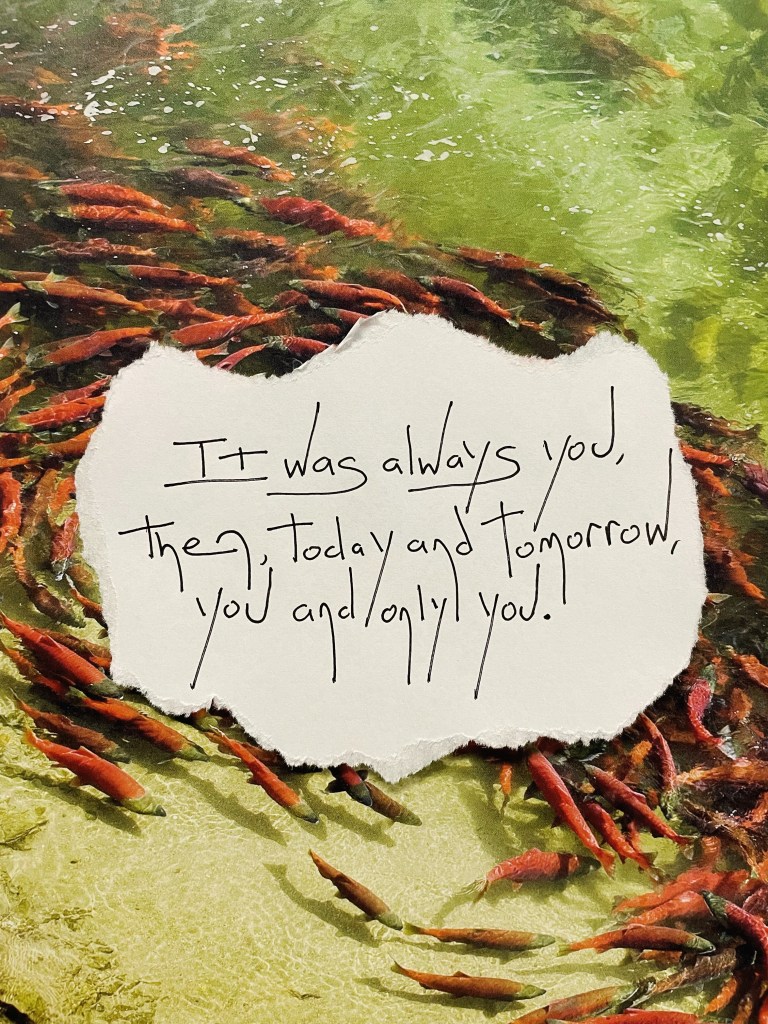 It was always you,
then, today and tomorrow,
you and only you.